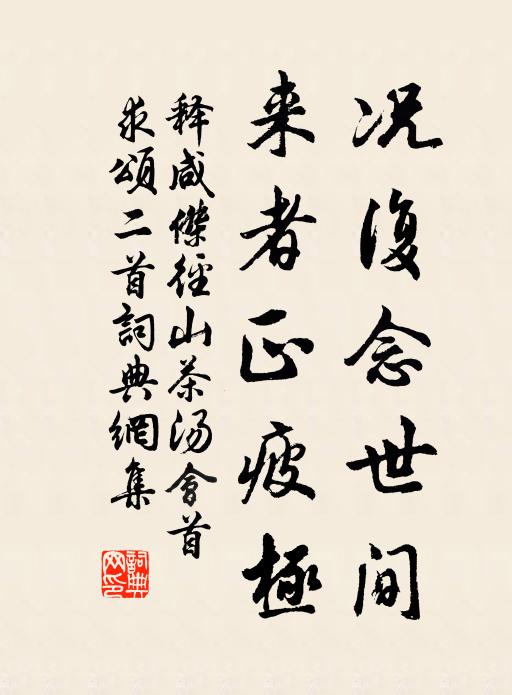 况復念世间
来者正疲極
释咸傑徑山茶汤會首
求頌二首詞典網集
詞典
网印